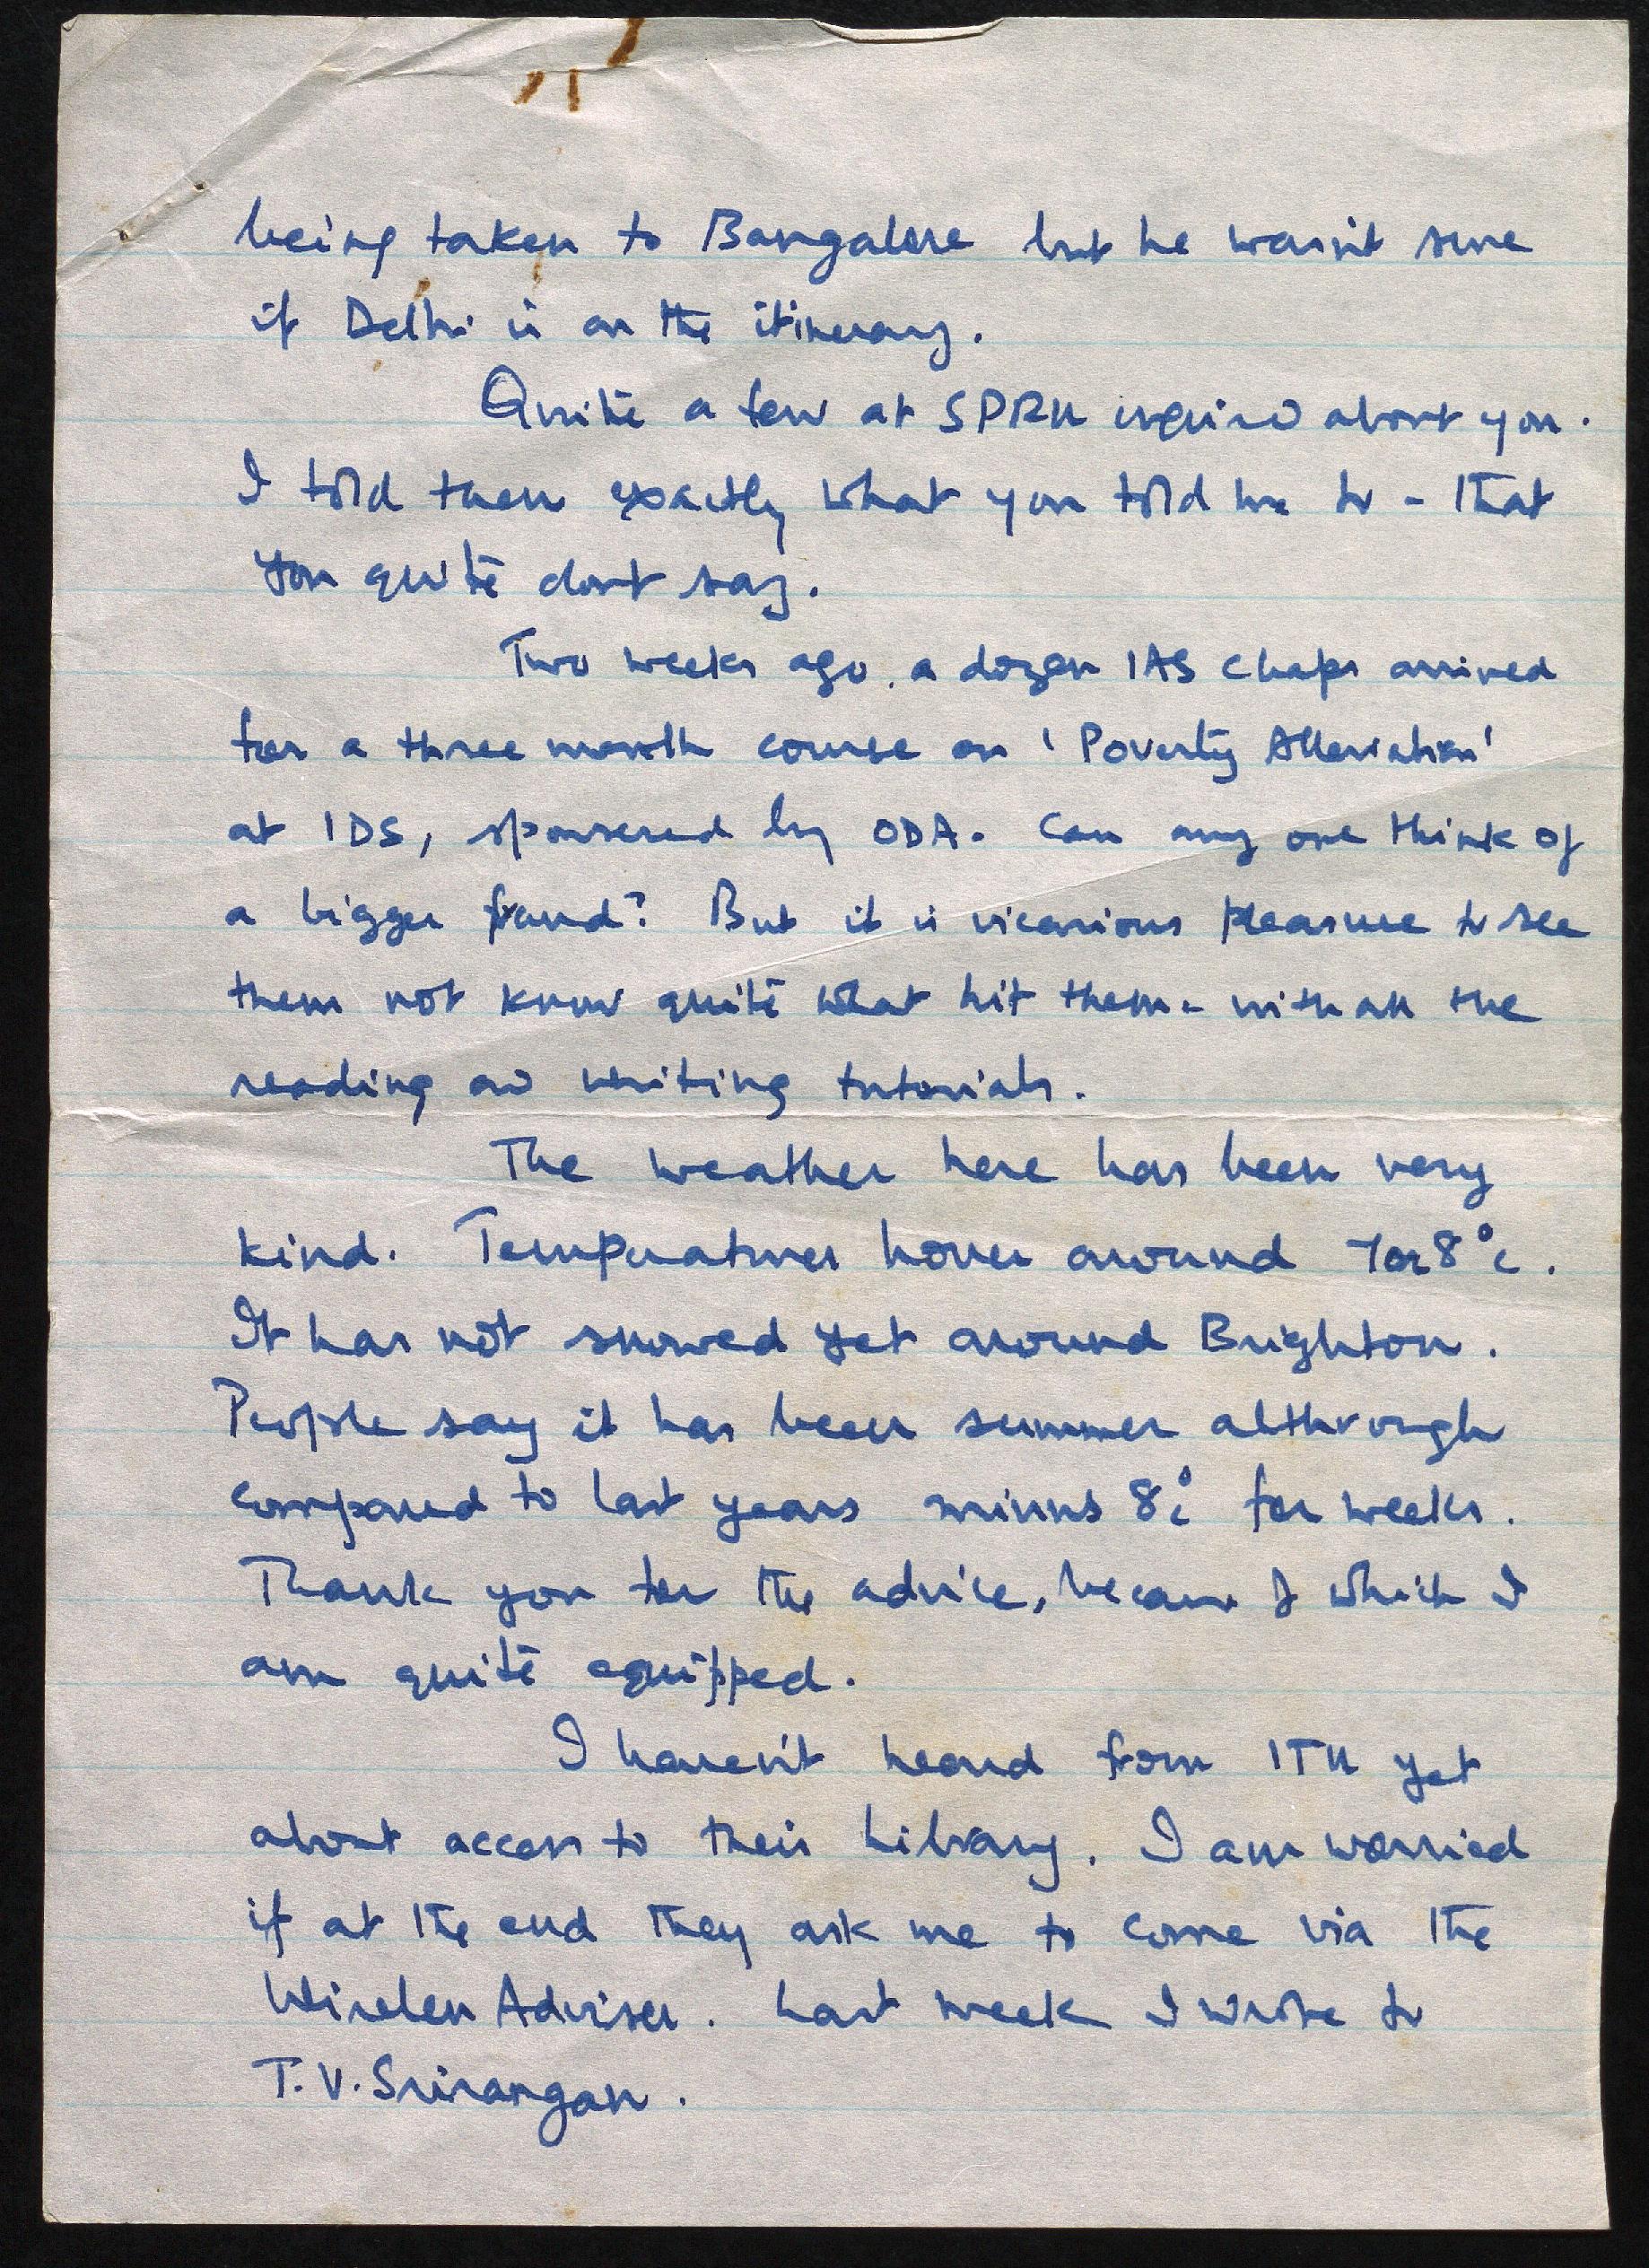 being taken to Bangalore but he wasn't sure
if Delhi is on the itinerary.
Quite a few at SPRU inquired about you.
I told them exactly what you told me to - that
you quite don't say.
Two weeks ago, a dozen IAS chaps arrived
for a three month course on 'Poverty Alleviation'
at IDS, sponsered by ODA. Can any one think of
a bigger fraud? But it is vicarious pleasure to see
them not know quite what hit them - with all the
reading and writing tutorials.
The weather here has been very
kind. Temperatures hover around 7 or 8°c.
It has not snowed yet around Brighton.
People say it has been summer althrough
compared to last years minus 8°c for weeks.
Thank you for the advice, because of which I
am quite equipped.
I haven't heard from ITU yet
about access to their Library. I am worried
if at the end they ask me to come via the
Wireless Adviser. Last week I wrote to
T.V. Srirangan.